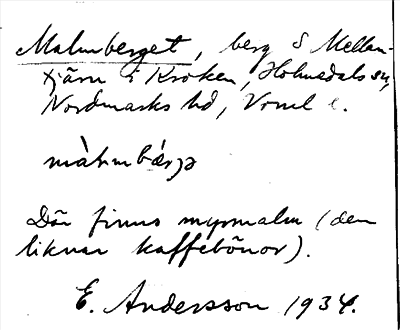 Malmberget, berg S Mellan-
tjärn i Kroken, Holmedals sn,
Nordmarks hd, Vrml
màlmbærjə
Där finns myrmalm (den
liknar kaffebönor).
E. Andersson 1934.